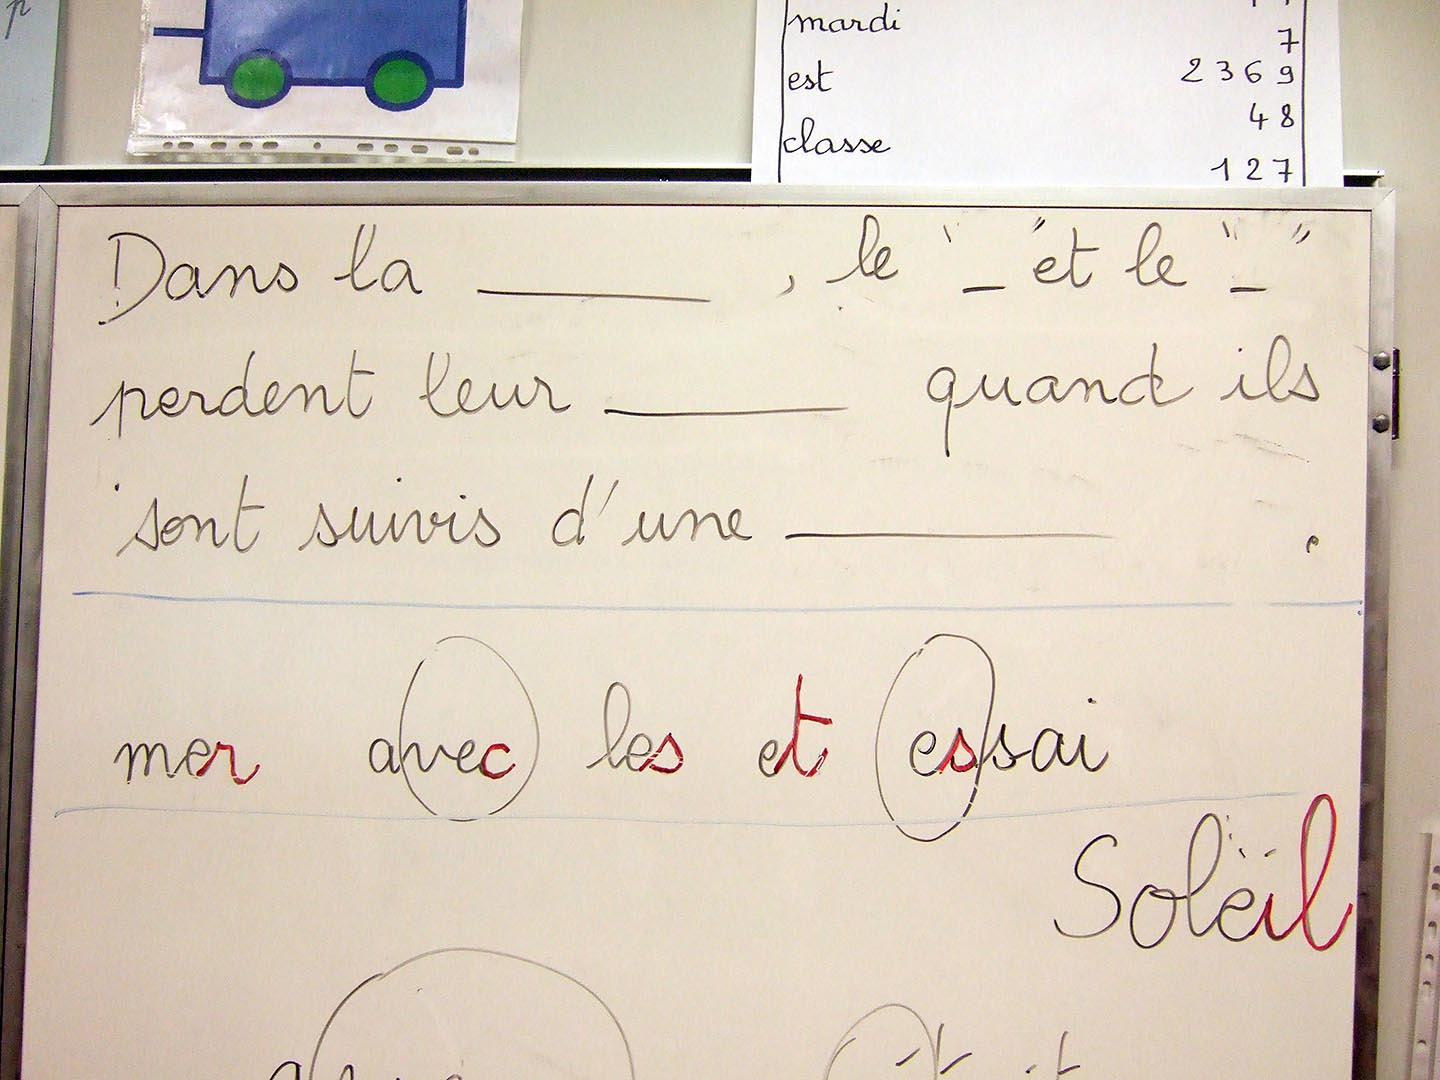 p
mardi
7
est 2 3 6 9
4 8
classe
1 2 7
Dans la ____ , le "_" et le "_"
perdent leur ____ quand ils
sont suivis d'une ____ .
mer avec les et essai
Soleil